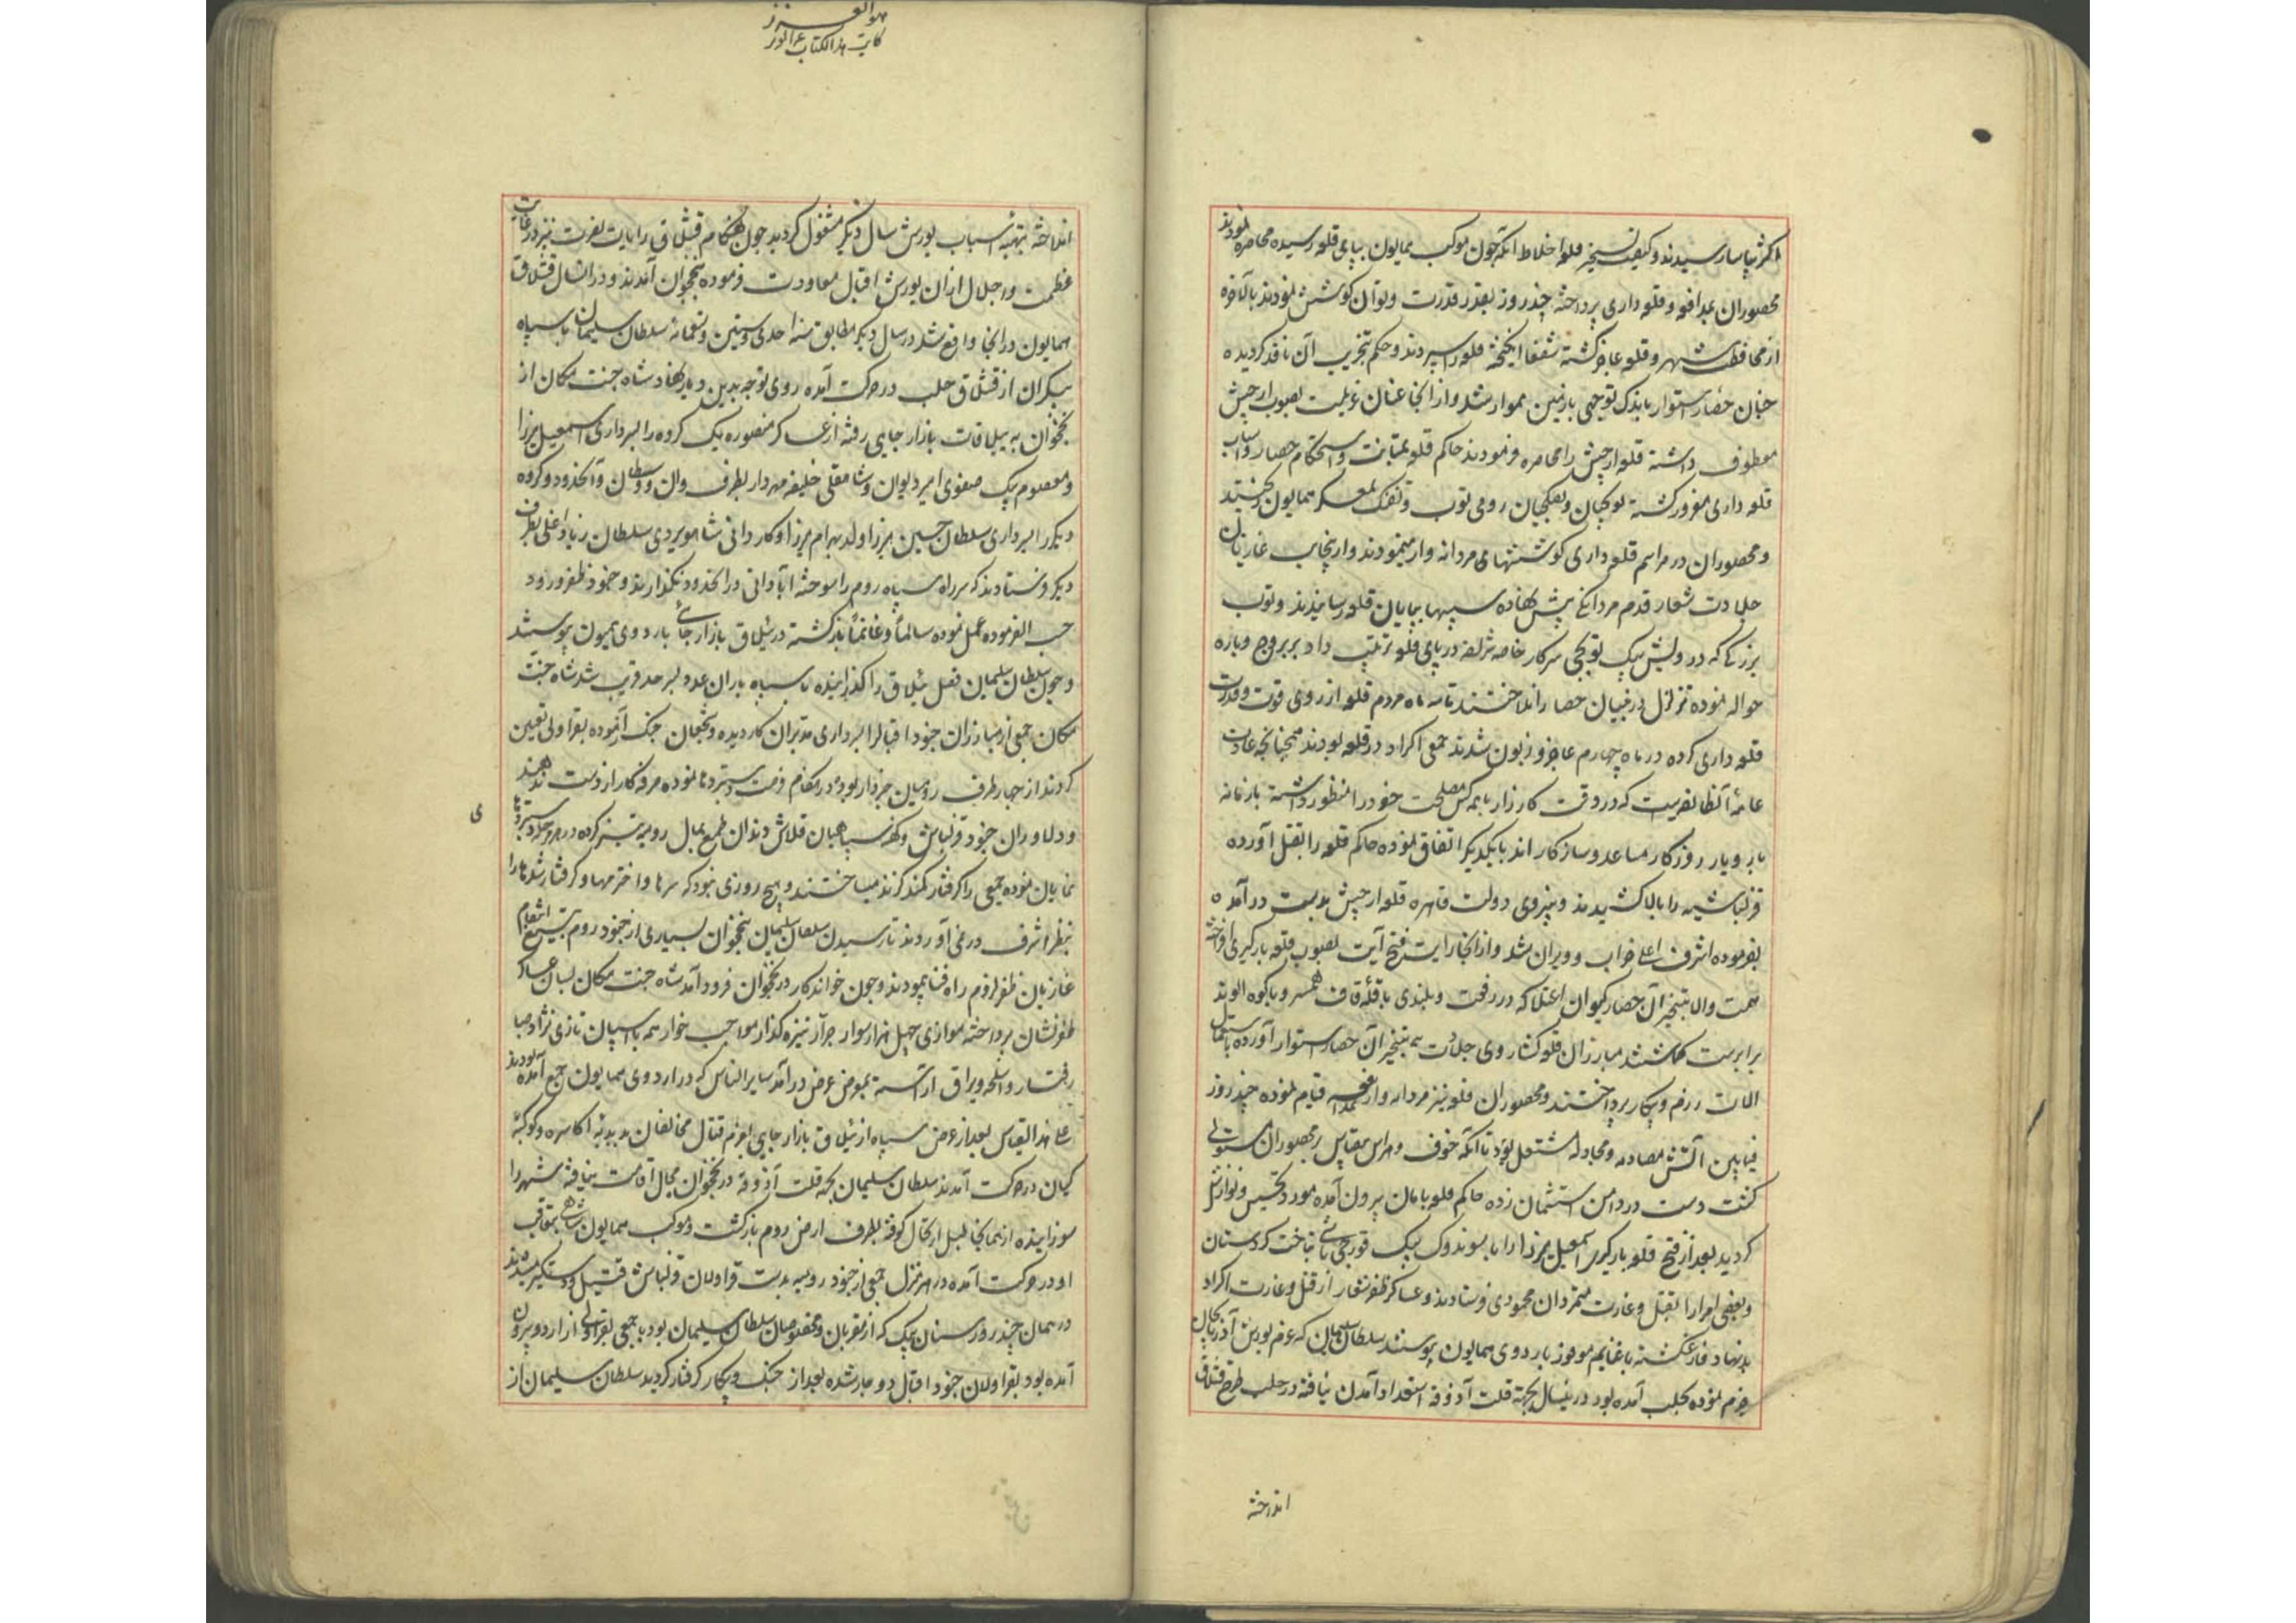 اکثر بیاسا رسیدند و کیفیت تسخیر قلعه اخلاط آنکه چون موکب همایون بپای قلعه رسیده محاصره نمودند
محصوران بمدافعه و قلعه داری پرداخته چند روز بقدر قدرت و توان کوشش نمودند بالآخره
از محافظت شهر و قلعه عاجز گشته شفعا انگیخته قلعه را سپردند و حکم بتخریب آن نافذ گردیده
چنان حصار استوار باندک توجهی با زمین هموار شد و از آنجا عنان عزیمت بصوب ارجیش
معطوف داشته قلعه ارجیش را محاصره فرمودند حاکم قلعه بمتانت و استحکام حصار و اسباب
قلعه داری مغرور گشته توپچیان و تفنگچیان رومی توپ و تفنگ بمعسکر همایون ریختند
و محصوران در مراسم قلعه داری کوششهای مردانه وار مینمودند و از ینجانب غازیان
جلادت شعار قدم مردانگی پیش نهاده سیبها بپایان قلعه رسانیدند و توپ
بزرگی که درویش بیک توپچی سرکار خاصه شریفه در پای قلعه ترتیب داد بر بروج و باره
حواله نموده تزلزل در بنیان حصار انداختند تا سه ماه مردم قلعه از روی قوت و قدرت
قلعه داری کرده در ماه چهارم عاجز و زبون شدند جمعی اکراد در قلعه بودند همچنانچه عادت
عامهٔ آنطایفه است که در وقت کارزار با همه کس مصلحت خود را منظور داشته با زمانه
یار و یار روزگار مساعد و سازگار اند با یکدیگر اتفاق نموده حاکم قلعه را بقتل آورده
قزلباشیه را ببالا کشیدند و بنیروی دولت قاهره قلعه ارجیش بدست درآمده
بفرموده اشرف اعلی خراب و ویران شد و از آنجا رایت فتح آیت بصوب قلعه بارگیری افراخته
همت والا بتسخیر آن حصار کیوان اعتلا که در رفعت و بلندی با قلهٔ قاف همسر و با کوه الوند
برابر است گماشتند مبارزان قلعه گشا روی جلادت بتسخیر آن حصار استوار آورده باستعمال
آلات رزم و پیکار پرداختند و محصوران قلعه نیز مردانه وار بمدافعه قیام نموده چند روز
فیمابین آتش مصادمه و مجادله مشتعل بود تا آنکه خوف و هراس بیقیاس بر محصوران مستولی
گشت دست در دامن استیمان زده حاکم قلعه بامان بیرون آمده مورد تحسین و نوازش
گردید بعد از فتح قلعه بارگیری اسمعیل میرزا را با سوندوک بیک قورچی باشی بتاخت کردستان
و بعضی امرا را بقتل و غارت متمردان محمودی فرستادند و عساکر ظفر شعار از قتل و غارت اکراد
بدنهاد فارغ گشته با غنایم موفور باردوی همایون پیوستند سلطان سلیمان که عزم یورش آذربایجان
جزم نموده بحلب آمده بود درینسال بجهة قلت آذوقه استعداد آمدن نیافته در حلب طرح قشلاق
انداخته
هو العزیز
کاتب هذا الکتاب
انداخته بتهیهٔ اسباب یورش سال دیگر مشغول گردید چون هنگام قشلاق رایات نصرت
عظمت و اجلال از آن یورش اقبال معاودت فرموده بنخجوان آمدند و در آنسال قشلاق
همایون در آنجا واقع شد در سال دیگر مطابق سنه احدی و ستین و تسعمائه سلطان سلیمان با سپاه
بیکران از قشلاق حلب در حرکت آمده روی توجه بدین دیار نهاد شاه جنت مکان از
نخجوان به ییلاقات بازار جایی رفته از عساکر منصوره یک گروه را بسرداری اسمعیل میرزا
و معصوم بیک صفوی امیر دیوان و شاهقلی خلیفه مهردار بطرف وان و وسطان و آنحدود و گروه
دیگر را بسرداری سلطان حسین میرزا ولد بهرام میرزا و کاردانی شاهویردی سلطان زیاد اغلی بطرف
دیگر فرستادند که سر راه سپاه روم را سوخته آبادانی در آنحدود نگذارند و جنود ظفر ورود
حسب الفرموده عمل نموده سالماً و غانماً بازگشته در ییلاق بازار جائی باردوی همیون پیوستند
و چون سلطان سلیمان فصل ییلاق را گذرانیده با سپاه باران عدد بسرحد قریب شد شاه جنت
مکان جمعی از مبارزان جنود اقبال را بسرداری مدبران کار دیده و شجعان جنگ آزموده بقراولی تعیین
کردند از چهار طرف رومیان خبردار بوده در مقام فرصت دستبردها نموده صرفه کار از دست ندهند
و دلاوران جنود قزلباش و کهنه سپاهیان قلاش دندان طمع بمال رومیه تیز کرده در هر مرحله دستبردهای
نمایان نموده جمعی را گرفتار کمند گزند میساختند و هیچ روزی نبود که سرها و اخترمها و گرفتار شدها را
بنظر اشرف در نمی آوردند تا رسیدن سلطان سلیمان بنخجوان بسیاری از جنود روم بتیغ انتقام
غازیان ظفر لزوم راه فنا پیمودند و چون خواندکار در نخجوان فرود آمد شاه جنت مکان بسان عساکر
ظفر نشان پرداخته موازی چهل هزار سوار جرار نیزه گذار مواجب خوار همه با اسپان تازی نژاد صبا
رفتار و اسلحه و یراق آراسته بموض عرض درآمد سایر الناس که در اردوی همایون جمع آمده بودند
علی هذا القیاس بعد از عرض سپاه از ییلاق بازار جایی بعزم قتال مخالفان بدبدبهٔ اکاسره و کوکبهٔ
کیان در حرکت آمدند سلطان سلیمان بجهة قلت آذوقه در نخجوان مجال اقامت نیافته شهر را
سوزانیده از همانجا طبل ارتحال کوفته بطرف ارض روم بازگشت و موکب همایون شاهی بتعاقب
او در حرکت آمده در هر منزل جمعی از جنود رومیه بدست قراولان قزلباش قتیل و دستگیر میشدند
در همان چند روز سنان بیک که از مقربان و مخصوصان سلطان سلیمان بود با جمعی بقراولی از اردو بیرون
آمده بود بقراولان جنود اقبال دوچار شده بعد از جنگ و پیکار گرفتار گردید سلطان سلیمان از